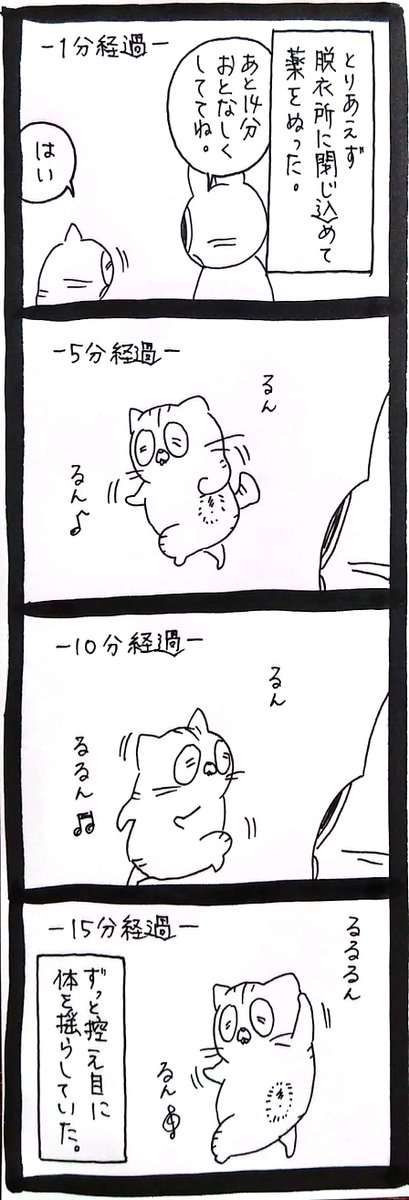 とりあえず
脱衣所に閉じ込めて
薬をぬった。
-1分経過-
あと14分
おとなしく
しててね。
はい
-5分経過-
るん
るん♪
-10分経過-
るん
るるん♫
-15分経過-
るるるん
るん𝄞
ずっと控え目に
体を揺らしていた。